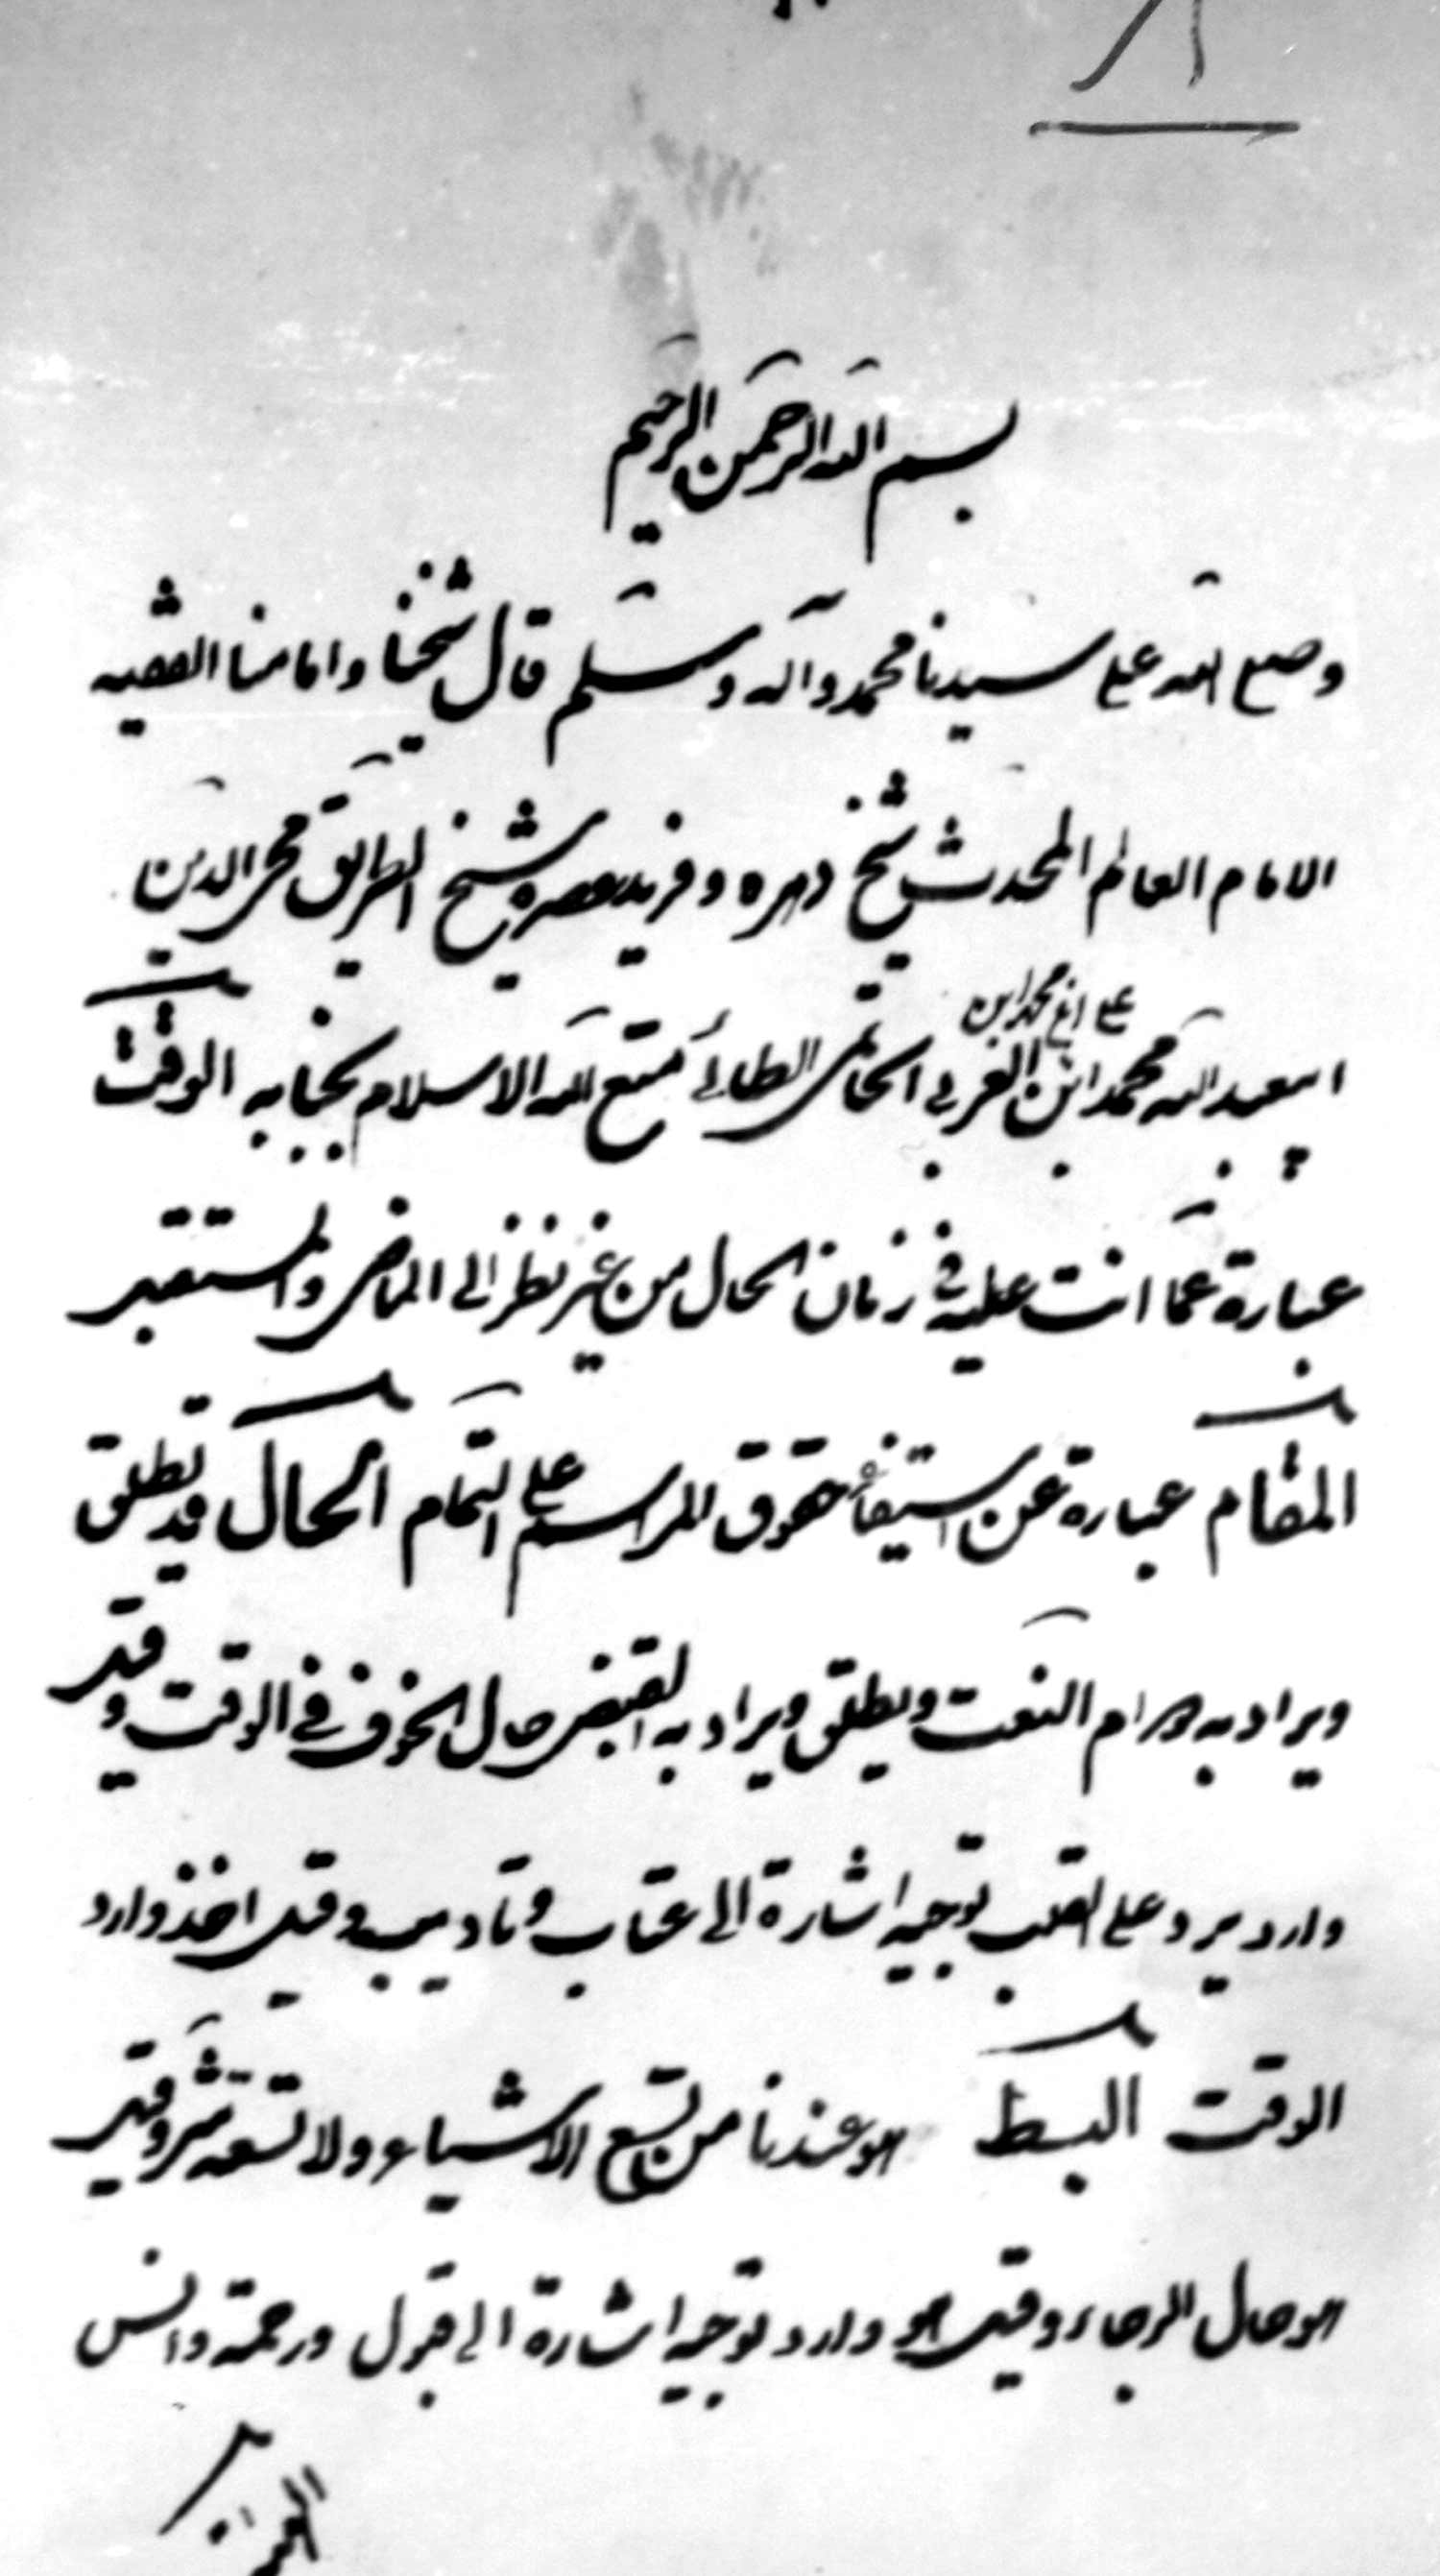 بسم الله الرحمن الرحيم
وصلى الله على سيدنا محمد وآله وسلم قال شيخنا وامامنا الفقيه
الامام العالم المحدث شيخ دهره وفريد عصره وشيخ الطريق محي الدين
ابي عبد الله محمد ابن العربي الحاتمي الطائي متع الله الاسلام بجنابه الوقت
علي محمد ابن
عبارة عما انت عليه في زمان الحال من غير نظر الى الماضي والمستقبل
المقام عبارة عن استيفاء حقوق المراسم على التمام الحال قد تطلق
ويراد به دوام النعت ويطلق ويراد به القبض حال الخوف في الوقت وقيل
وارد يرد على القلب توجيه اشارة الى عتاب وتاديب وقيل اخذ وارد
الوقت البسط هو عندنا من تسع الاشياء ولا تسعه شئ وقيل
هو حال الرجاء وقيل هو وارد توجيه اشارة الى قبول ورحمة وانس